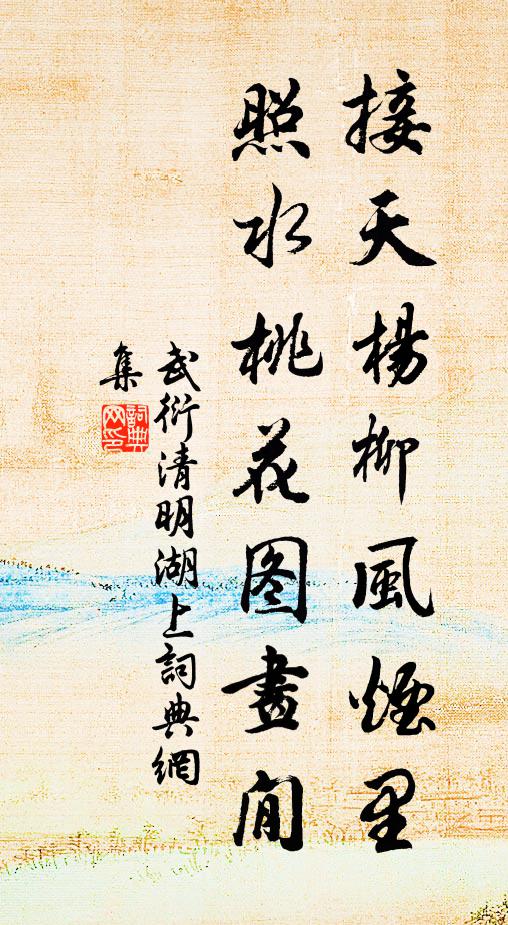 接天楊柳風煙里
照水桃花图畫間
武衍清明湖上詞典網
集
詞典網印